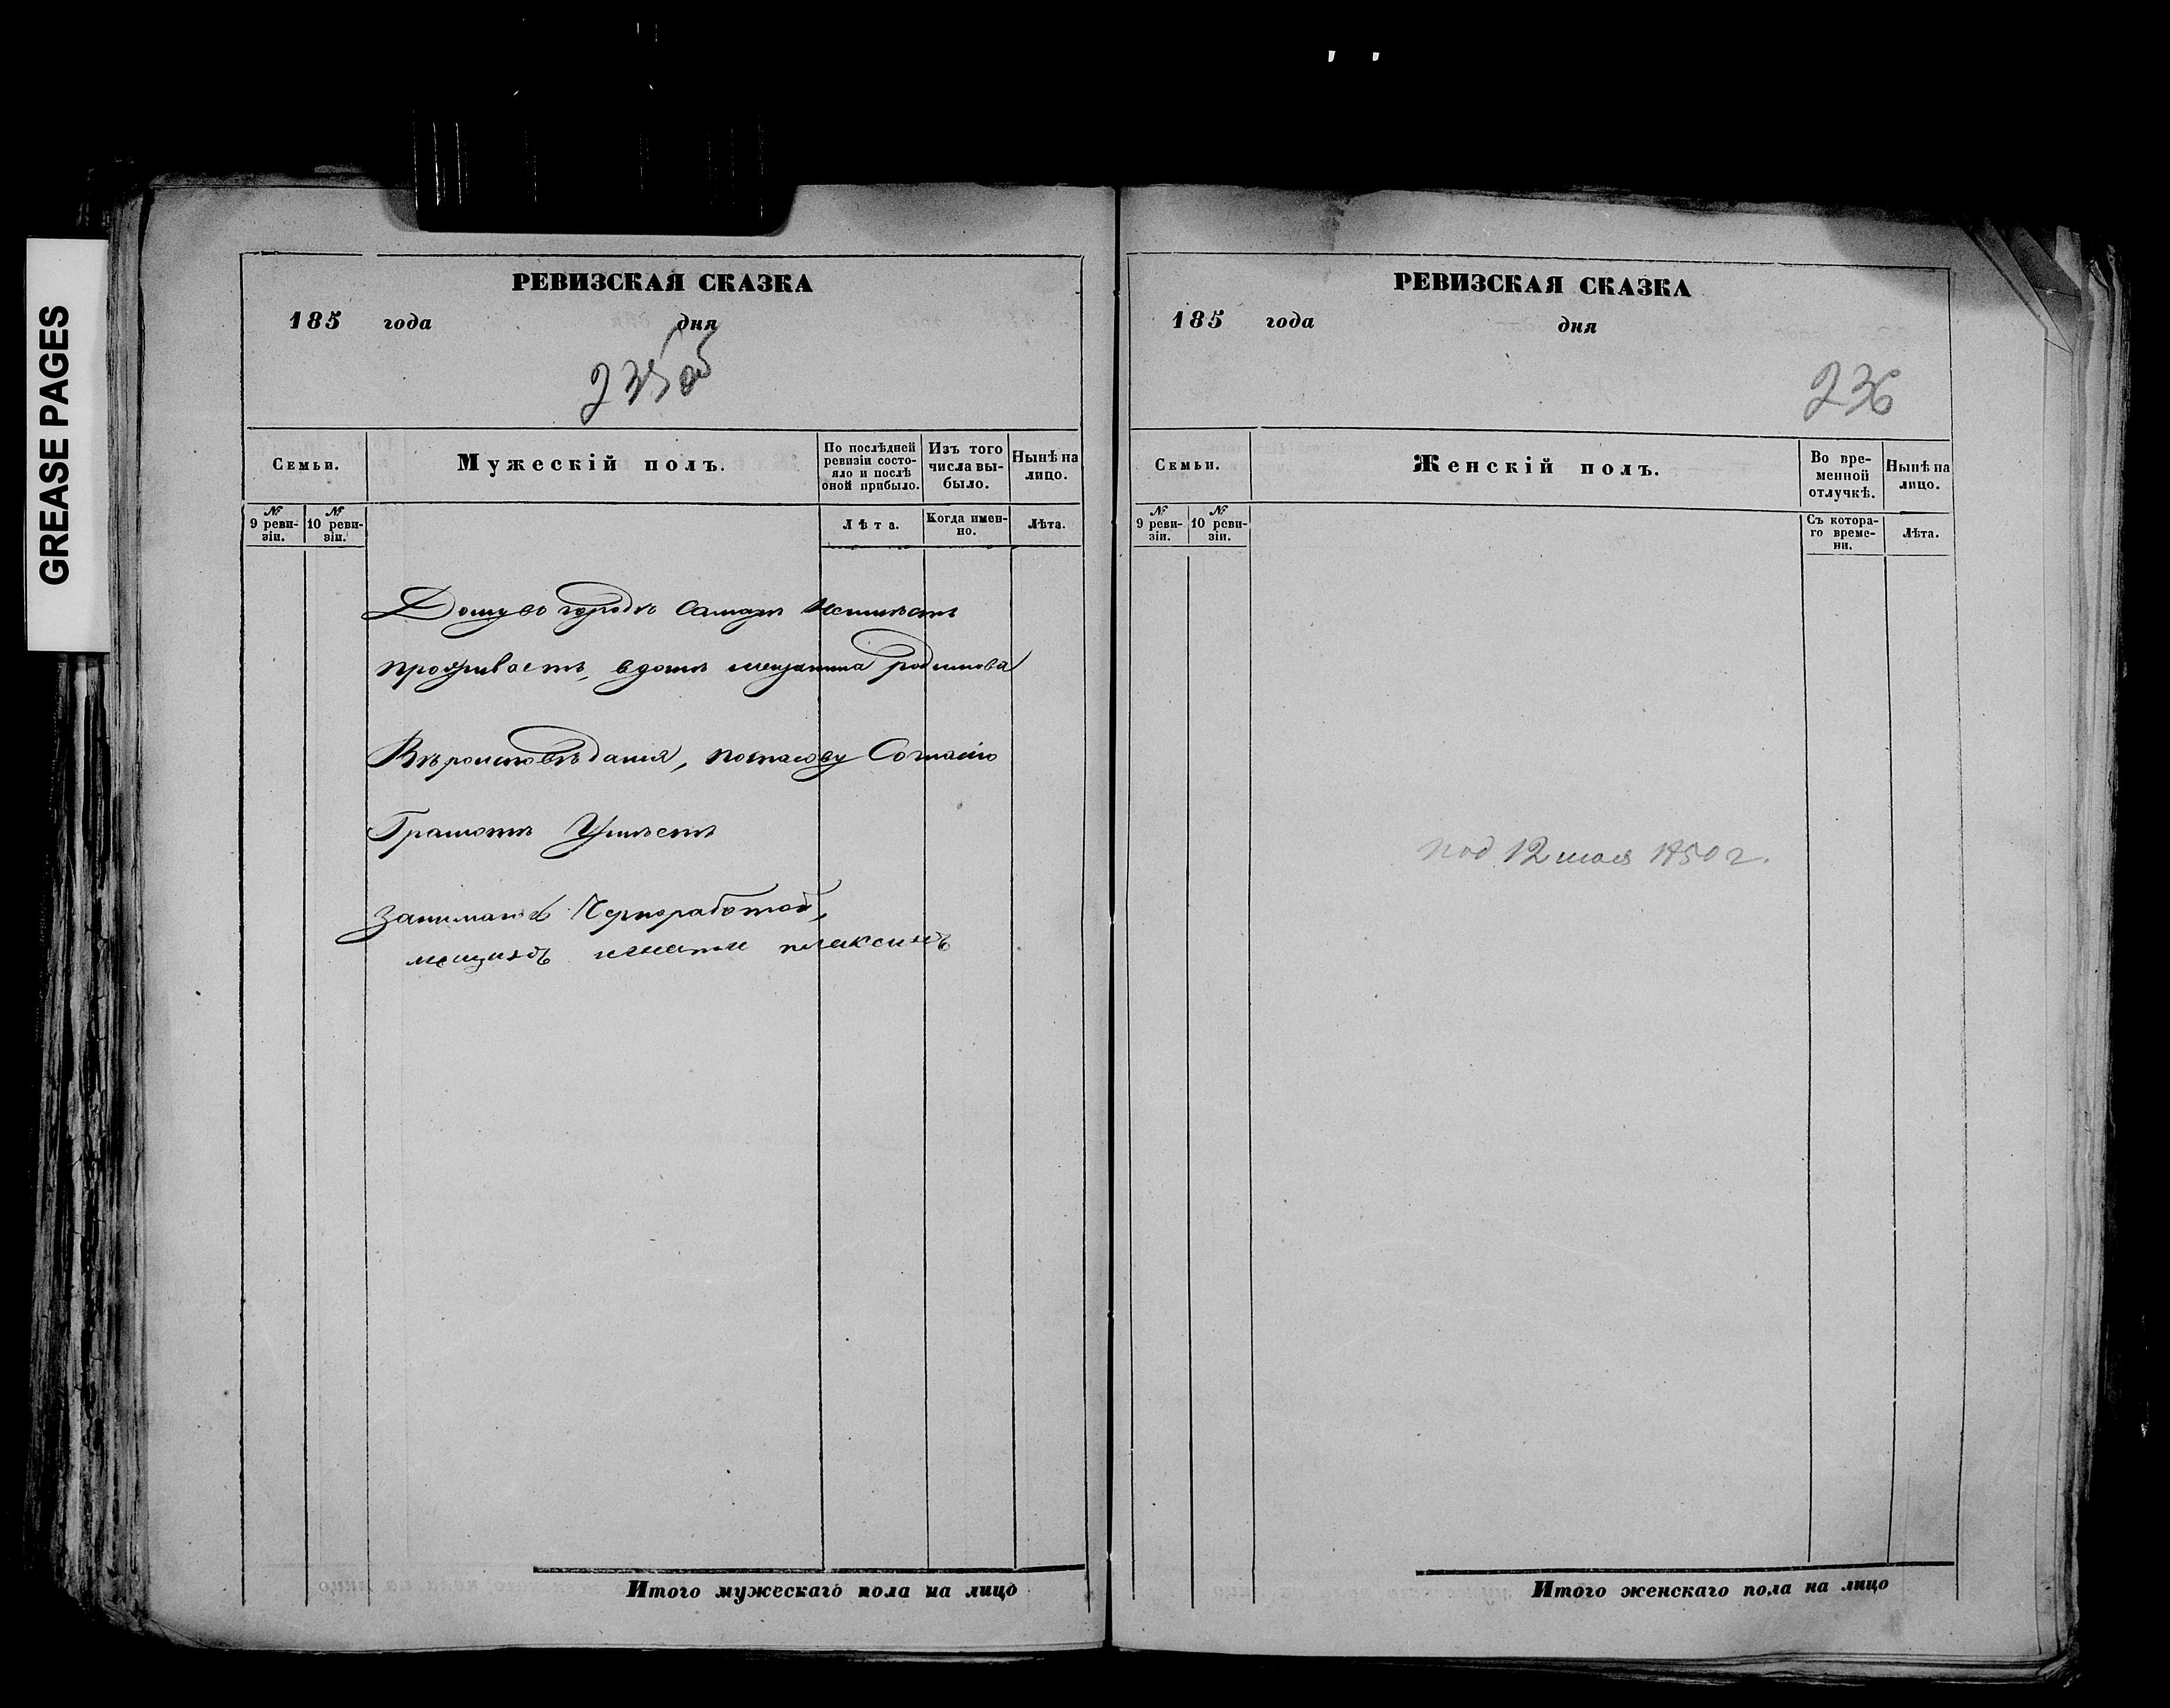 GREASE PAGES
РЕВИЗСКАЯ СКАЗКА
185 года дня
235об
Семьи.
Мужескій полъ.
По послѣдней ревизіи состояло и послѣ оной прибыло.
Изъ того числа выбыло.
Нынѣ на лицо.
№ 9 ревизіи.
№ 10 ревизіи.
Лѣта.
Когда именно.
Лѣта.
Дому во городѣ Самарѣ Неимѣетъ
проживаетъ, вдомѣ мещанина родимова
Вѣроисповѣданія, поспасову Согласію
Грамотѣ Умѣетъ
Занимаюсь Чернработой,
мещинъ плаксинъ
Итого мужескаго пола на лицо
РЕВИЗСКАЯ СКАЗКА
185 года дня
236
Семьи.
Женскій полъ.
Во временной отлучкѣ.
Нынѣ на лицо.
№ 9 ревизіи.
№ 10 ревизіи.
Съ котораго времени.
Лѣта.
под 12 мая 1850 г.
Итого женскаго пола на лицо